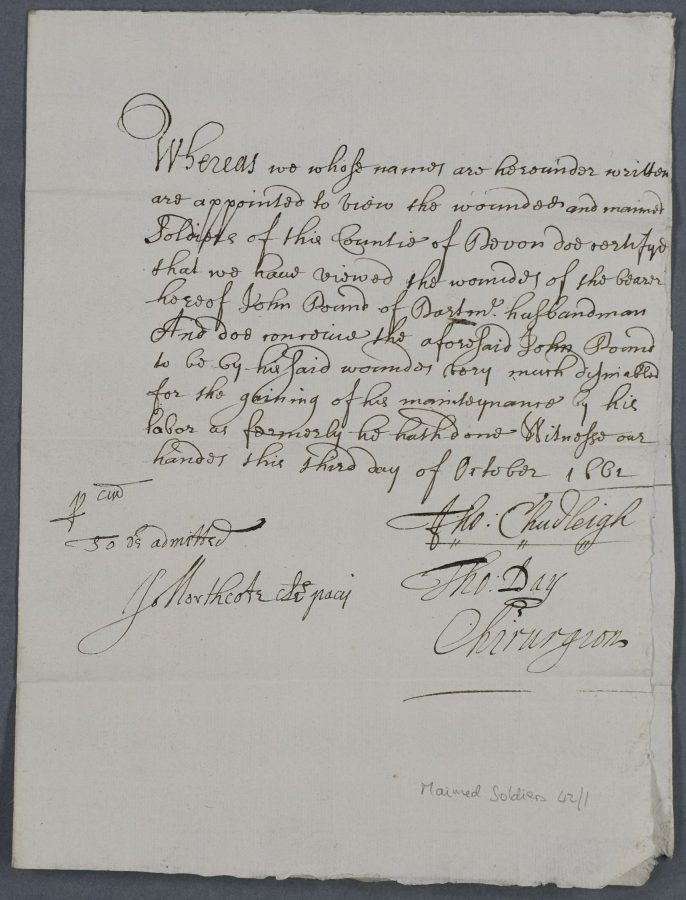 Whereas we whose names are hereunder written
are appointed to view the wounded and maimed
Soldiers of this Countie of Devon doe certifye
that we have viewed the woundes of the bearer
hereof John Pound of Dartmo. husbandman
And doe conceive the aforesaid John Pound
to be by his said woundes very much dysinabled
for the gaining of his mainteynance by his
labor as formerly he hath done Witnesse our
handes this third day of October 1661
to be admitted
Jo Northcote cler pacis
Tho: Chudleigh
Tho: Day
Chirurgion
Maimed Soldiers 42/1